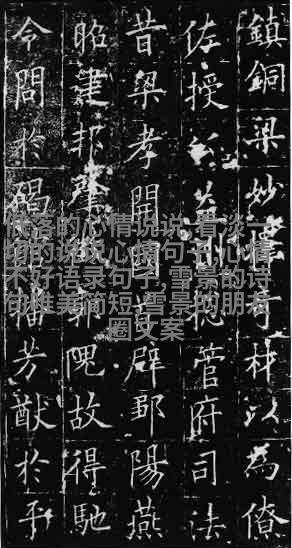 鎮銅梁妙簡奇材以為僚
佐授揔管府司法
昔梁孝開國首辟鄒陽燕
昭建邦肇徵郭隗故得馳
令問於碣館播芳猷於平
低落的心情说说,看淡一
切的说说心情句子,心情
不好语录句子,雪景的诗
句唯美简短,雪景的朋友
圈文案